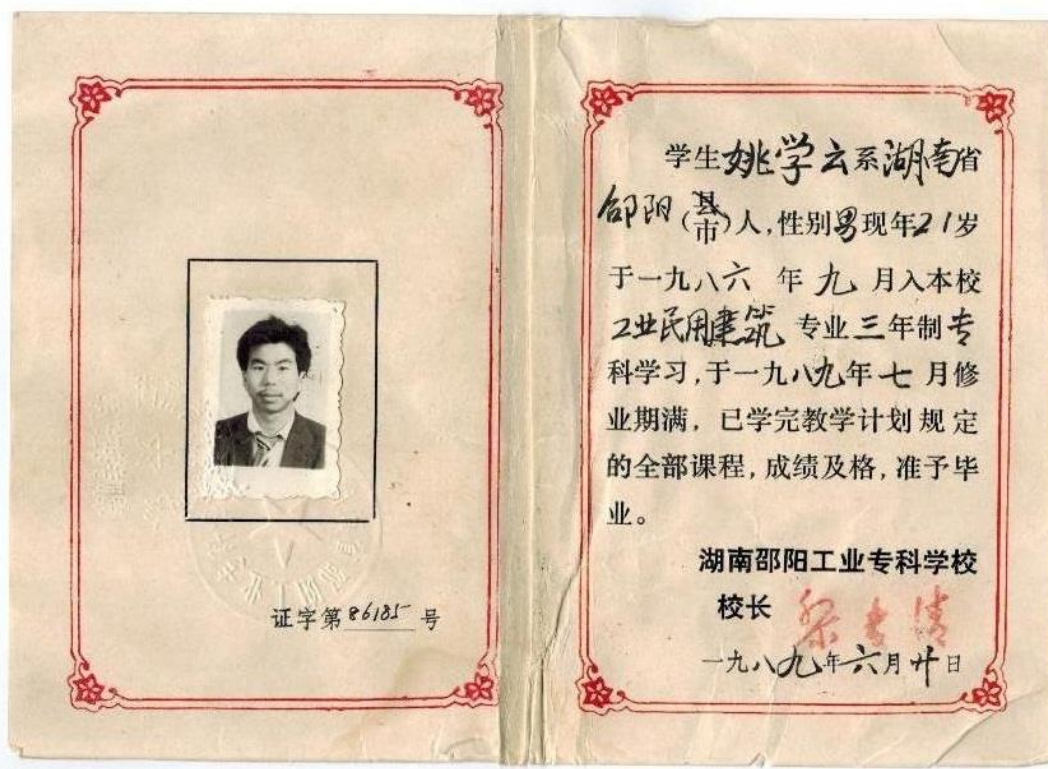 证字第86185号
学生姚学云系湖南省
邵阳(县市)人,性别男现年21岁
于一九八六年九月入本校
工业民用建筑专业三年制专
科学习,于一九八九年七月修
业期满,已学完教学计划规定
的全部课程,成绩及格,准予毕
业。
湖南邵阳工业专科学校
校长
一九八九年六月廿日